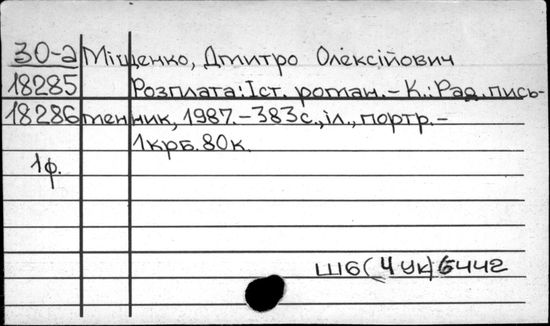 30-а Міщенко, Дмитро Олексійович
18285 Розплата: Іст. роман. – К.: Рад. пись-
18286 менник, 1987. – 383 с., іл., портр. –
1 крб. 80 к.
1ф.
Ш6(4Ук)6442